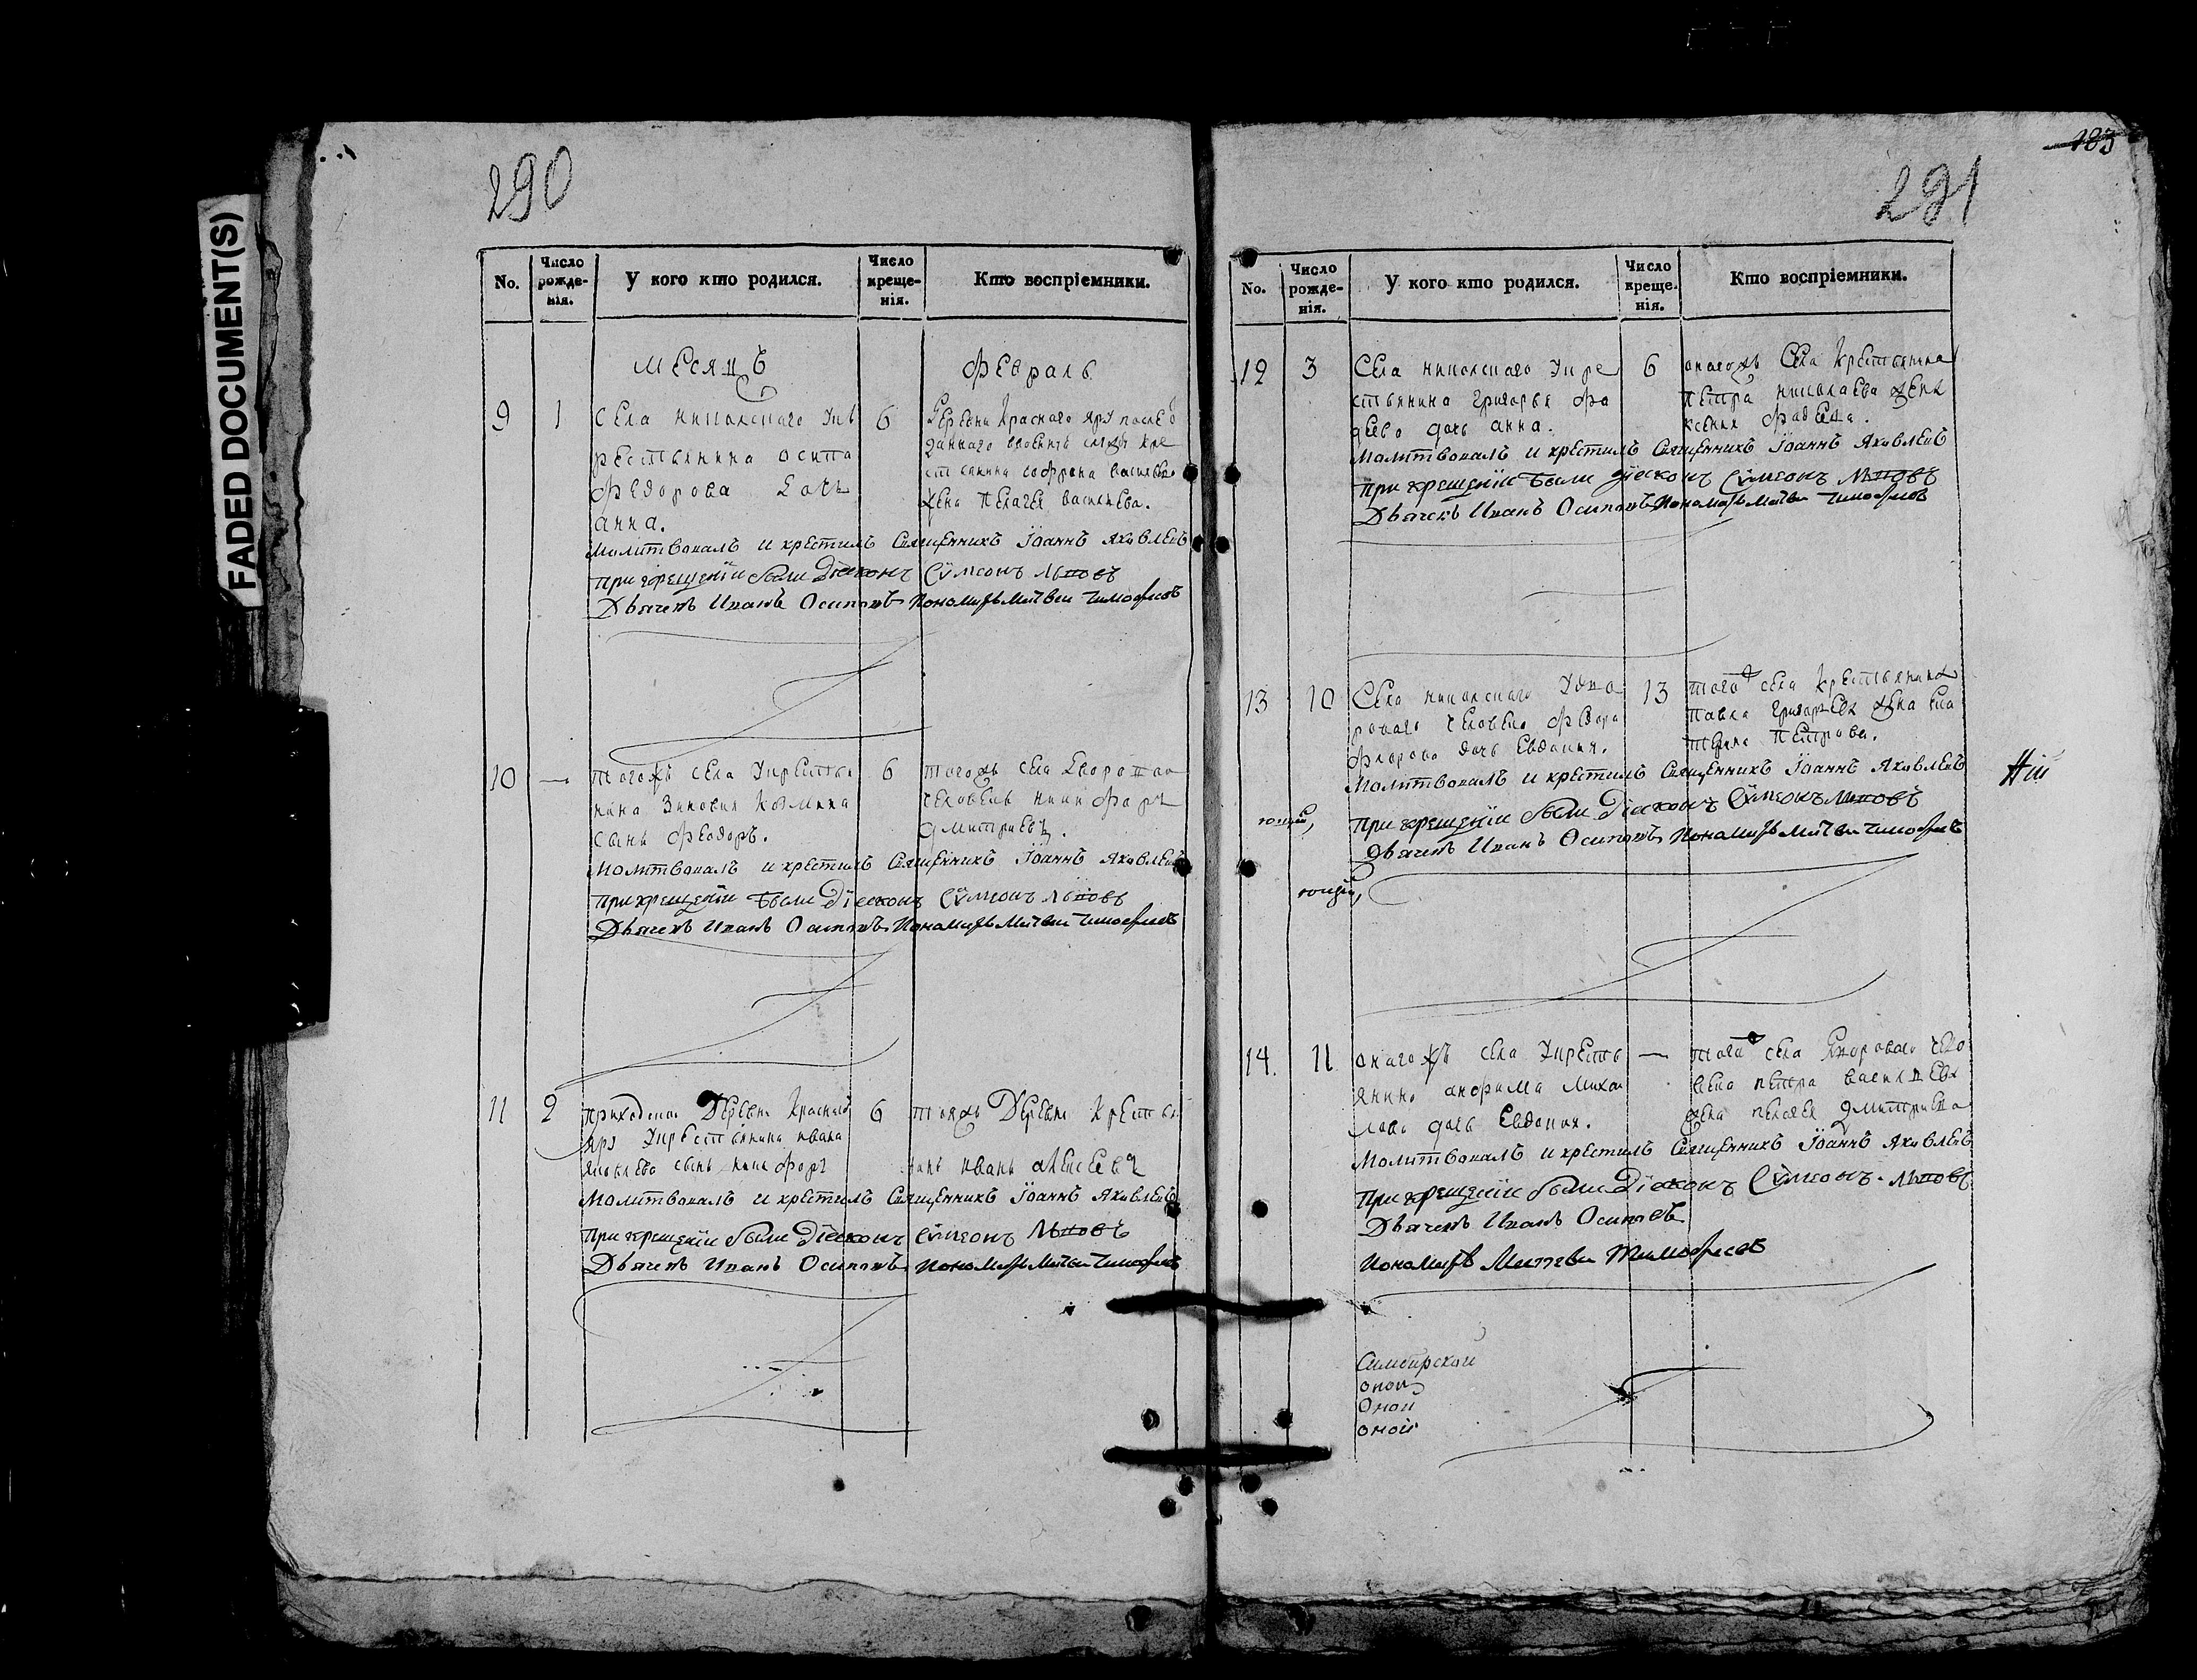 FADED DOCUMENT(S)
290
No.
Число рожде-нія.
У кого кто родился.
Число креще-нія.
Кто воспріемники.
месяцъ
Февраль
9 1 села николскаго у к
рестьянина осипа
Федорова дочь
анна.
6 Деревни Красного яру
данного
жена Пелагея васильева.
молитвовалъ и крестилъ Священникъ Іоаннъ Яковлевъ
при крещеніи были Діаконъ Сѵмеонъ
Дьячекъ Иванъ Осиповъ Пономарь Матвеи Тимофеевъ
10 — тогожъ села у крестья
нина Зиновия Козмина
сынъ Феодоръ.
6 тогожъ села дворовои
человекъ никифоръ
дмитриевъ.
молитвовалъ и крестилъ Священникъ Іоаннъ Яковлевъ
при крещеніи были Діаконъ Сѵмеонъ
Дьячекъ Иванъ Осиповъ Пономарь Матвеи Тимофеевъ
11 2 Деревни Красный
яръ у крестьянина ивана
яковлева сынъ никифоръ
6 тояжъ Деревни крестья
нинъ иванъ алексеевъ
Молитвовалъ и крестилъ Священникъ Іоаннъ Яковлевъ
при крещеніи были Діаконъ Сѵмеонъ
Дьячекъ Иванъ Осиповъ Пономарь Матвеи Тимофеевъ
183
291
No.
Число рожде-нія.
У кого кто родился.
Число креще-нія.
Кто воспріемники.
12 3 Села николскаго у кре
стьянина григорья фа
деева дочь анна.
6 оногожъ Села Крестьянина
петра николаева жена
ксения фадеева.
Молитвовалъ и крестилъ Священникъ Іоаннъ Яковлевъ
при крещеніи были діаконъ Сѵмеонъ
Дьячекъ Иванъ Осиповъ Пономарь Матвеи Тимофеевъ
13 10 Села николскаго у дво
роваго человека Федора
Флорова дочь Евдокия.
13 тогожъ села Крестьянина
павла григорьева жена ека
терина петрова.
Молитвовалъ и крестилъ Священникъ Іоаннъ Яковлевъ
при крещеніи были Діаконъ Сѵмеонъ
Дьячекъ Иванъ Осиповъ Пономарь Матвеи Тимофеевъ
14. 11 оногожъ села у кресть
янина анфима михаи
лова дочь Евдокия.
— тогожъ села Дворового чело
века петра васильева
жена пелагея дмитриева
Молитвовалъ и крестилъ Священникъ Іоаннъ Яковлевъ
При крещеніи были Діаконъ Сѵмеонъ
Дьячекъ Иванъ Осиповъ
Пономарь Матвеи Тимофеевъ
Симбирской
оной
Оной
оной